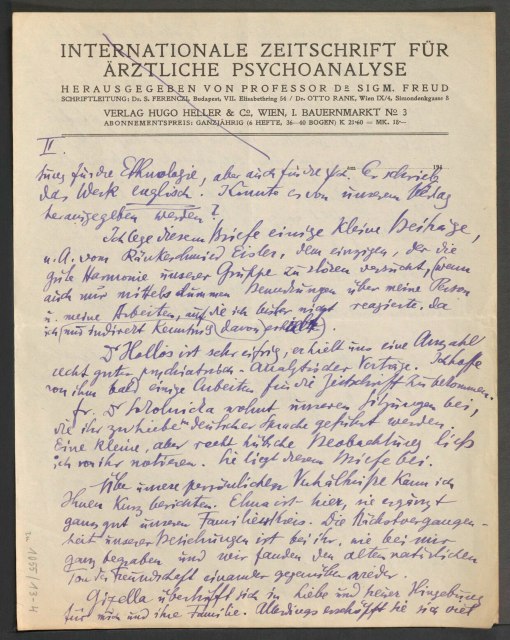 INTERNATIONALE ZEITSCHRIFT FÜR
ÄRZTLICHE PSYCHOANALYSE
HERAUSGEGEBEN VON PROFESSOR DR SIGM. FREUD
SCHRIFTLEITUNG: Dr. S. FERENCZI, Budapest, VII. Elisabethring 54 / Dr. OTTO RANK, Wien IX/4, Simondenkgasse 8
VERLAG HUGO HELLER & Co, WIEN, I. BAUERNMARKT No 3
ABONNEMENTSPREIS: GANZJÄHRIG (6 HEFTE, 36—40 BOGEN) K 21·60 = MK. 18·—
II.
am 191
tung für die Ethnologie, aber auch für die Er schrieb
das Werk englisch. Könnte es von unserem Verlag
herausgegeben werden?
Ich lege diesem Briefe einige kleine Beiträge,
u. A. vom Eisler, dem einzigen, der die
gute Harmonie unserer Gruppe zu stören versucht, (wenn
auch nur mittels dummen Bemerkungen über meine Person
u. meine Arbeiten, auf die ich bisher nicht reagierte, da
ich nur indirekt Kenntnis davon
Dr Hollós ist sehr eifrig, erhielt uns eine Anzahl
recht guter psychiatrisch-analytischer Vorträge. Ich hoffe
von ihm bald einige Arbeiten für die Zeitschrift zu bekommen.
Fr. Dr Sokolnicka wohnt unseren Sitzungen bei,
die ihr zuliebe in deutscher Sprache geführt werden.
Eine kleine, aber recht hübsche Beobachtung ließ
ich von ihr notieren. Sie liegt diesem Briefe bei.
Über unsere persönlichen Verhältnisse kann ich
Ihnen kurz berichten. Elma ist hier, sie ergänzt
ganz gut unseren Familienkreis. Die Nächstvergangen-
heit unserer Beziehungen ist bei ihr, wie bei mir
ganz begraben und wir fanden den alten natürlichen
Ton der Freundschaft einander gegenüber wieder.
Gizella übertrifft sich in Liebe und Hingebung
für mich und ihre Familie. Allerdings erschöpft sie sich viel
1055/13-4